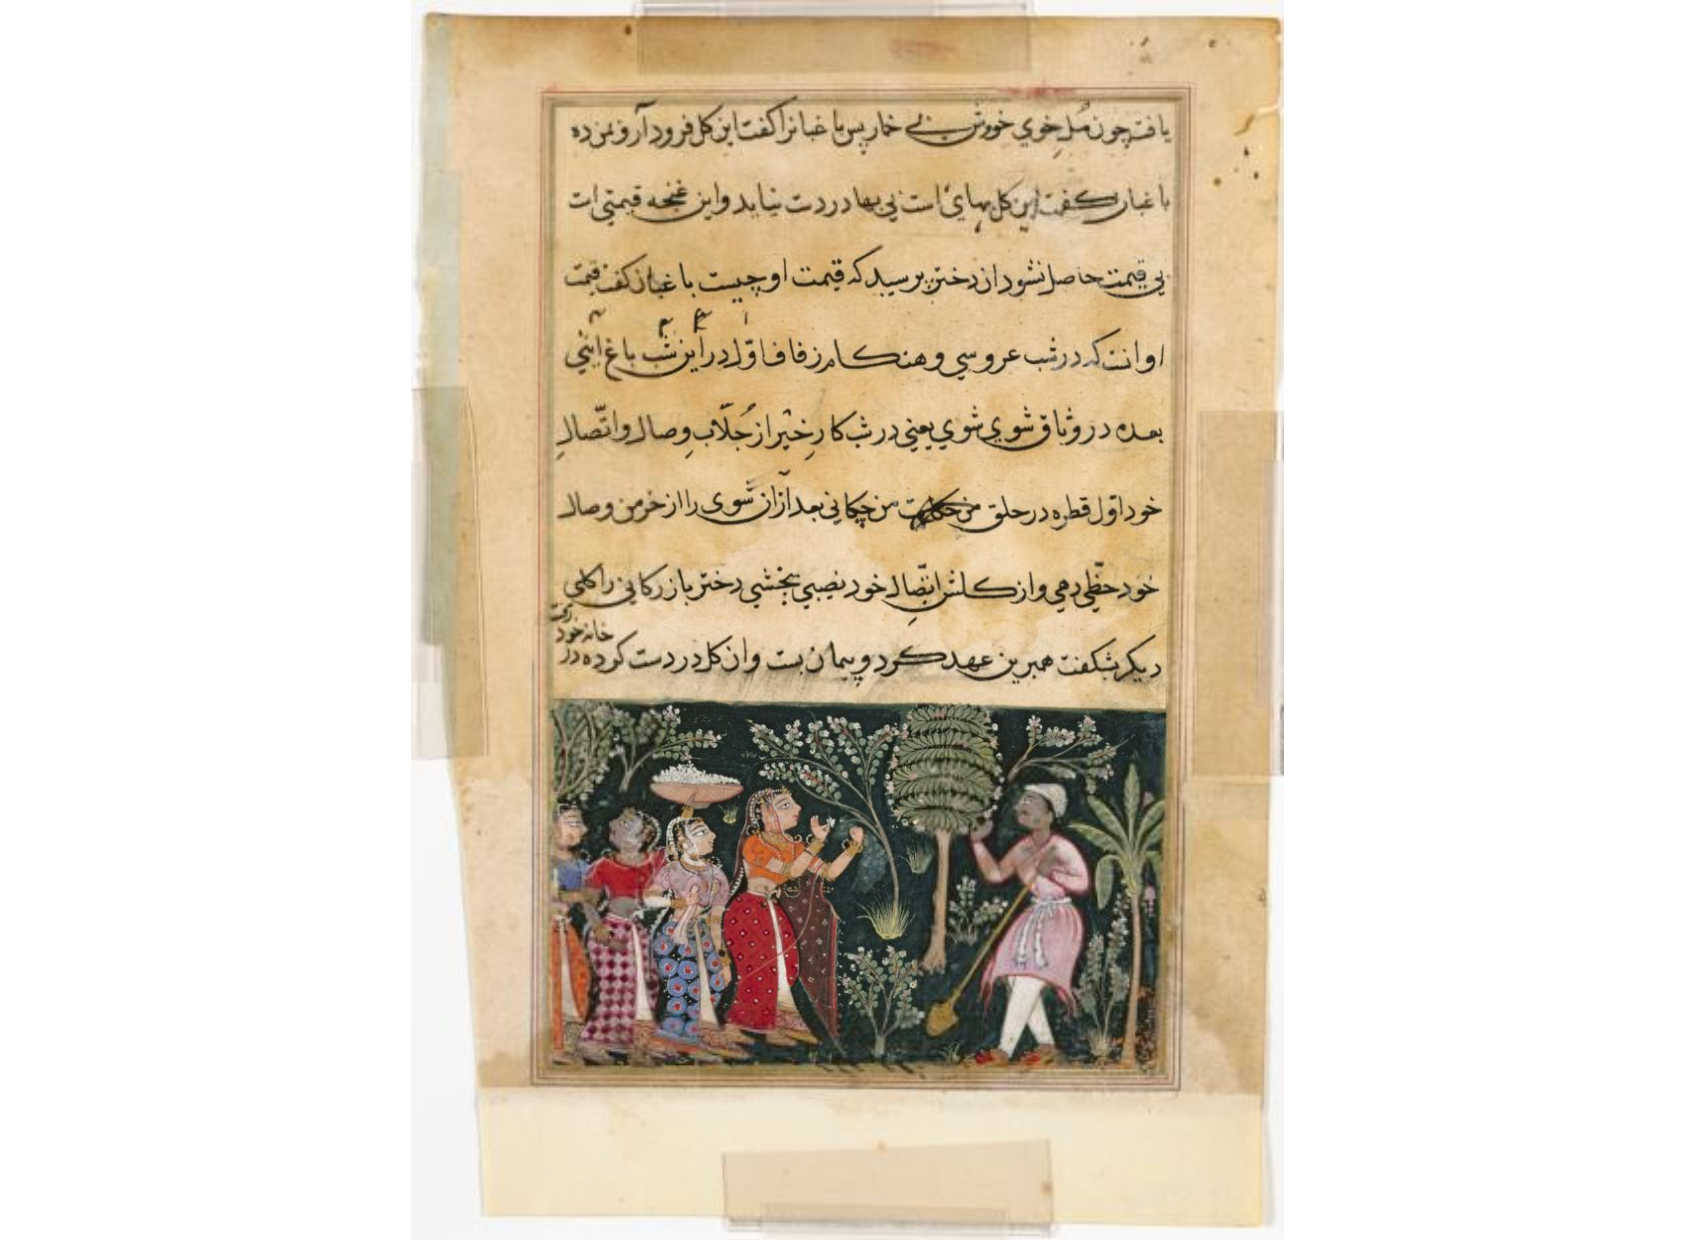 یافت چون مُل خوي خودش بی خمار پس باغبانرا گفت این گل فرود آر و بمن ده
باغبان گفت این گل بهایٔ است بی بها در دست نیاید و این غنچه قیمتی است
بی قیمت حاصل نشود ان دختر پرسید که قیمت او چیست باغبان گفت قیمت
او انست که در شب عروسي و هنکام زفاف اوّل در این شب باغ ایٔي
بعده در وثاق شوي شوي یعني در شب کار خیر از جُلّابِ وصال و اتّصالِ
خود اوّل قطره در حلق من چکانی بعد ازان شوی را از خرمن وصال
خود حظّي دهي و از کلشن اتّصالِ خود نصیبي بخشي دختر بازرکانی را کلي
دیکر بشکفت همبرین عهد کرد و پیمان بست و ان کل در دست کرده در
خانه خود رفت